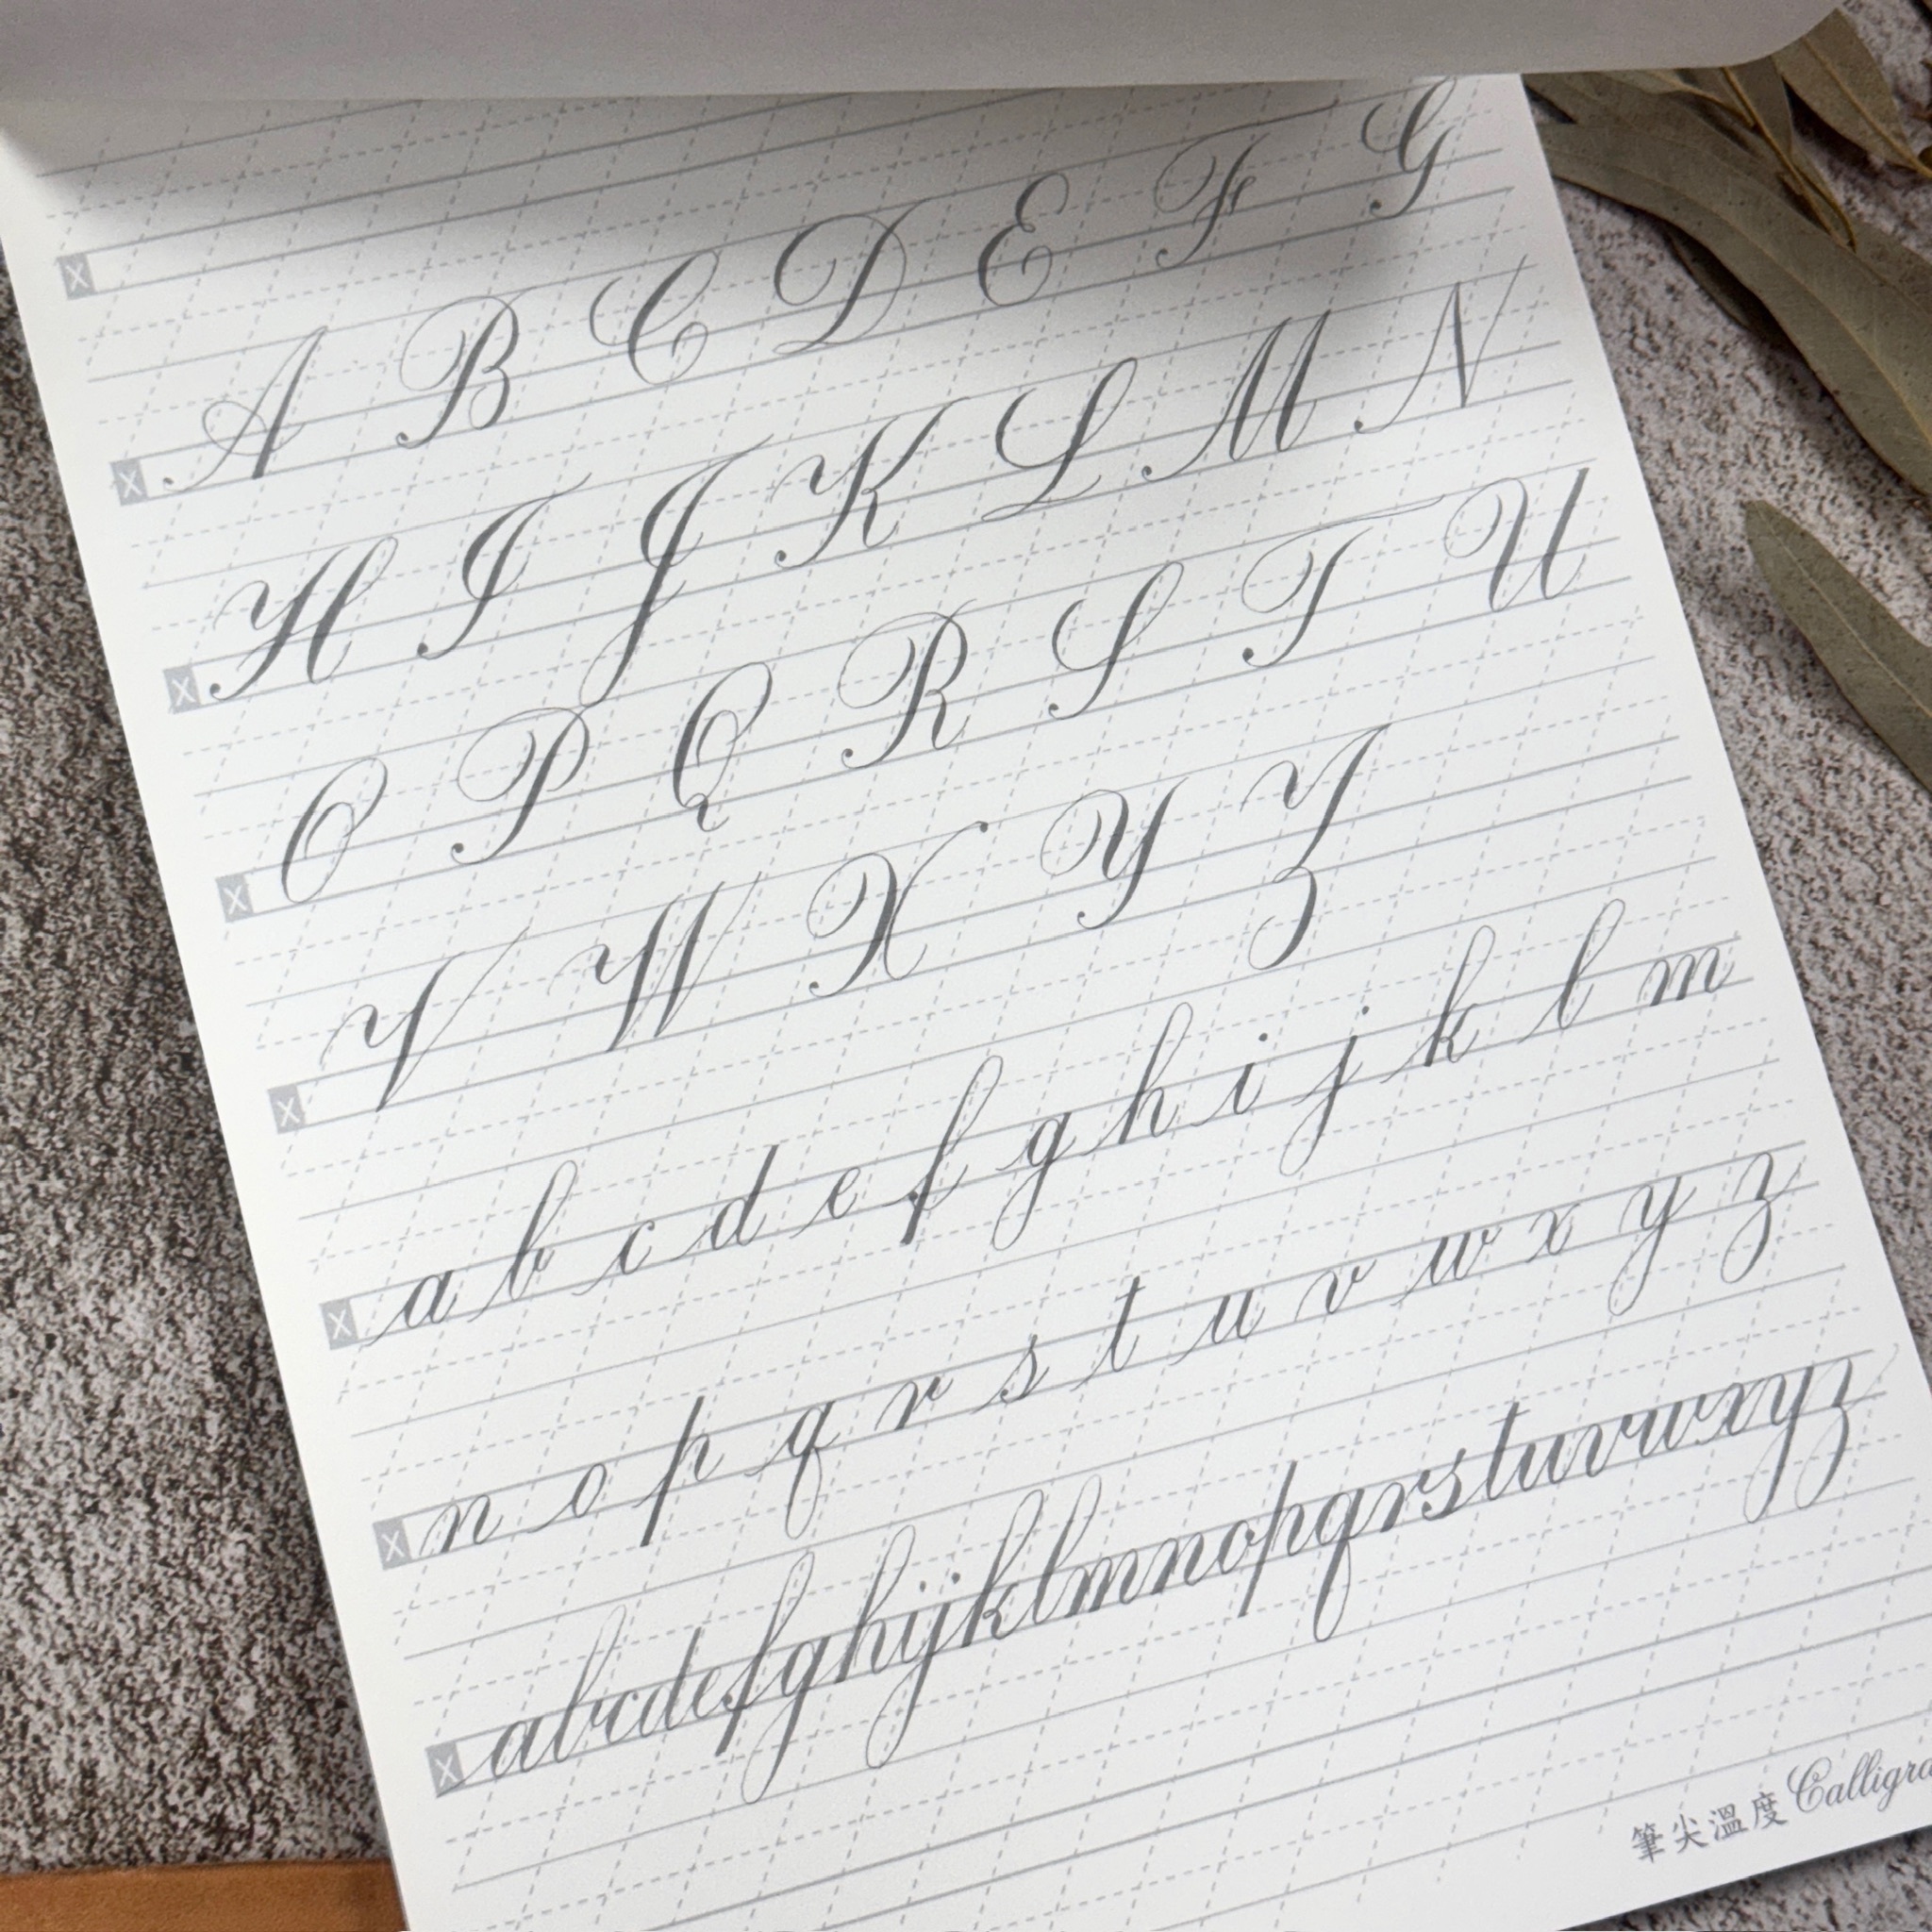 X
X A B C D E F G
X H I J K L M N
X O P Q R S T U
X V W X Y Z
X a b c d e f g h i j k l m
X n o p q r s t u v w x y z
X abcdefghijklmnopqrstuvwxyz
筆尖溫度 Calligra